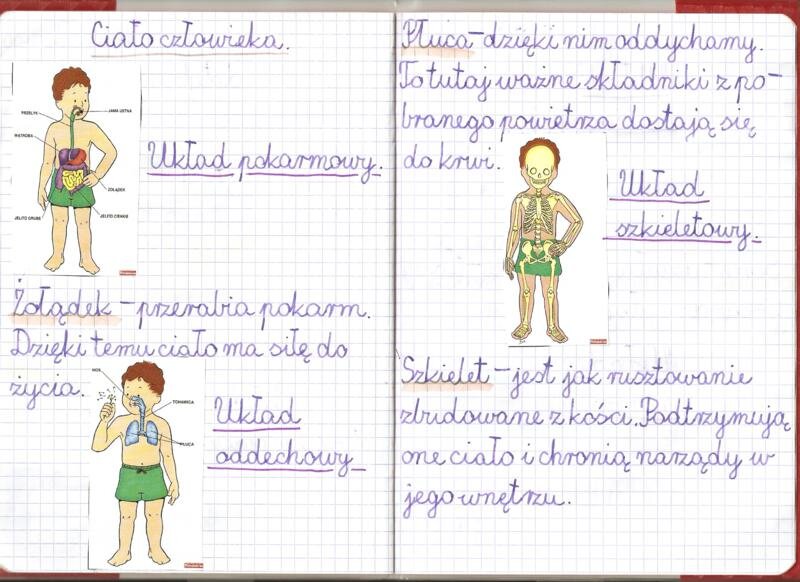 Ciało człowieka.
PRZEŁYK
JAMA USTNA
WĄTROBA
ŻOŁĄDEK
JELITO GRUBE
JELITO CIENKIE
Układ pokarmowy.
Żołądek – przerabia pokarm.
Dzięki temu ciało ma siłę do
życia.
NOS
TCHAWICA
PŁUCA
Układ
oddechowy
Płuca – dzięki nim oddychamy.
To tutaj ważne składniki z po-
branego powietrza dostają się
do krwi.
Układ
szkieletowy.
Szkielet – jest jak rusztowanie
zbudowane z kości. Podtrzymują
one ciało i chronią narządy w
jego wnętrzu.